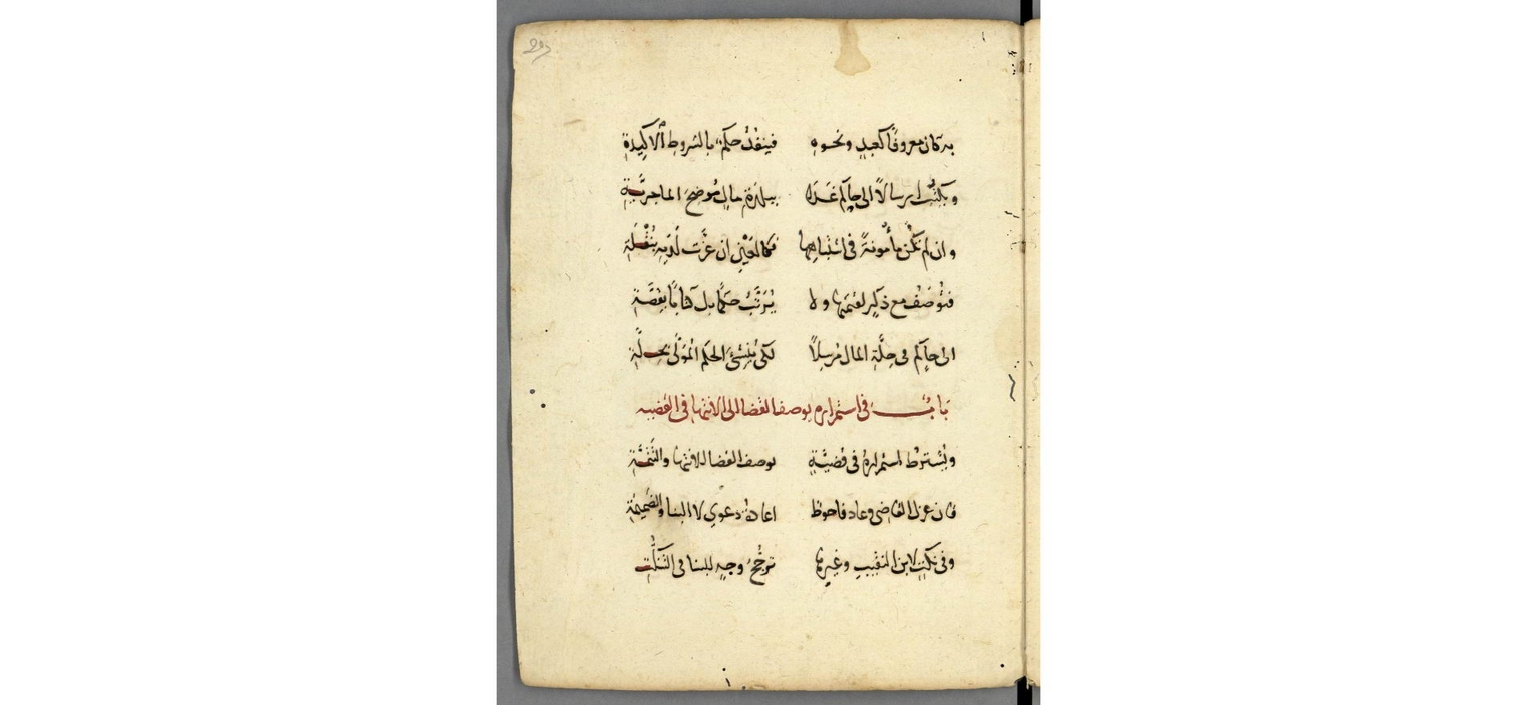 به كان معروفًا كعبدٍ ونحوه فينفذ حكم بالشروط الاكيدة
ويكتب ارسالًا الى حاكم غدا ببلدة مال موضح الماجرية
وان لم تكن مأمونةً في اشتباهها فكالعين ان عزت لديه بنقلة
فتوصف مع ذكرٍ لقيمتها ولا يرتب حكمًا بل كتابًا بقصة
الى حاكم في حلة المال مرسلًا لكى ينشئ الحكم المولى بحلة
باب في استمراره بوصف القضا الى الانتها في القضيه
ويشترط استمراره في قضية بوصف القضا للانتها والتتمة
فان عزل القاضي وعاد فاحوظ اعادة دعوى لا البنا والضميمة
وفي نكت لابن النقيب وغيرها ترجح وجه للبنا في